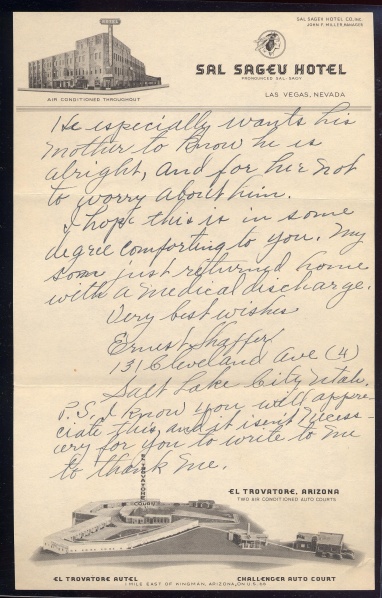 HOTEL
SAL SAGEV HOTEL CO., INC.
JOHN F. MILLER, MANAGER
SAL SAGEV HOTEL
PRONOUNCED SAL-SAGY
AIR CONDITIONED THROUGHOUT
LAS VEGAS, NEVADA
He especially wants his
mother to know he is
alright, and for her not
to worry about him.
I hope this is in some
degree comforting to you. My
son just returned home
with a medical discharge.
Very best wishes
Ernest Shaffer
131 Cleveland Ave (4)
Salt Lake City Utah.
P.S. I know you will appre-
ciate this, and it isent necess-
ery for you to write to me
to thank me.
EL TROVATORE
EL TROVATORE, ARIZONA
TWO AIR CONDITIONED AUTO COURTS
EL TROVATORE AUTEL
CHALLENGER AUTO COURT
1 MILE EAST OF KINGMAN, ARIZONA, ON U.S. 66